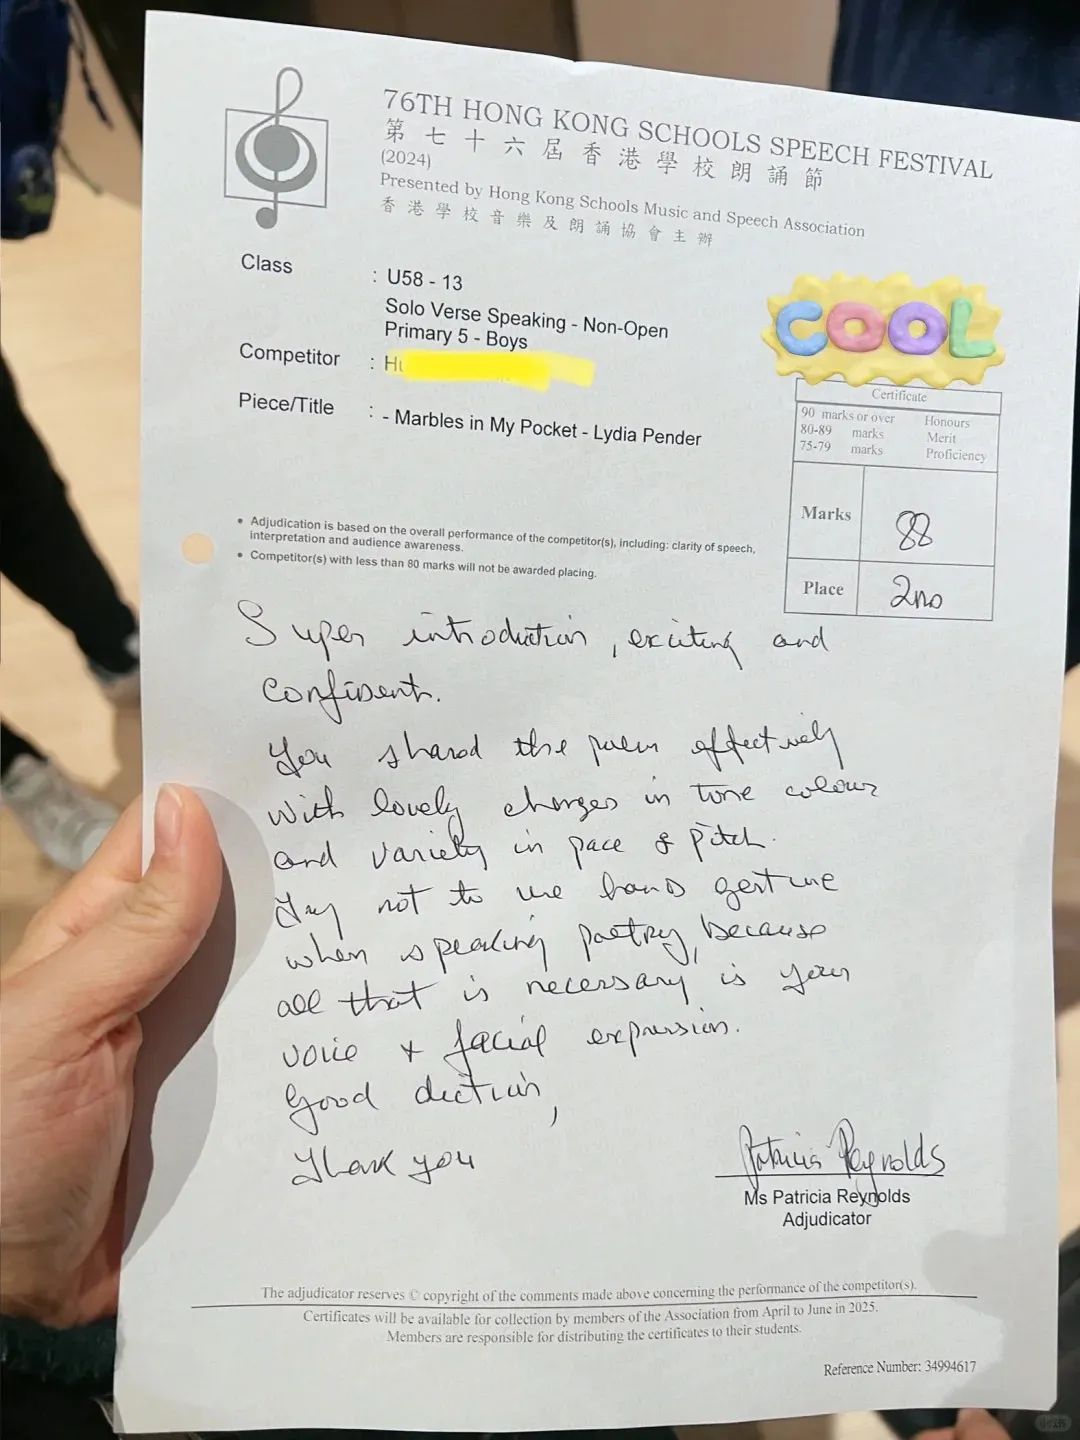 76TH HONG KONG SCHOOLS SPEECH FESTIVAL
第七十六屆香港學校朗誦節
(2024)
Presented by Hong Kong Schools Music and Speech Association
香港學校音樂及朗誦協會主辦
Class : U58 - 13
Solo Verse Speaking - Non-Open
Primary 5 - Boys
Competitor :
Piece/Title : - Marbles in My Pocket - Lydia Pender
COOL
Certificate
90 marks or over Honours
80-89 marks Merit
75-79 marks Proficiency
Marks 88
Place 2ND
• Adjudication is based on the overall performance of the competitor(s), including: clarity of speech,
interpretation and audience awareness.
• Competitor(s) with less than 80 marks will not be awarded placing.
Super introduction, exciting and
confident.
You shared the poem effectively
with lovely changes in tone colour
and variety in pace & pitch.
Try not to use hand gesture
when speaking poetry, because
all that is necessary is your
voice + facial expression.
Good diction,
Thank you
Patricia Reynolds
Ms Patricia Reynolds
Adjudicator
The adjudicator reserves © copyright of the comments made above concerning the performance of the competitor(s).
Certificates will be available for collection by members of the Association from April to June in 2025.
Members are responsible for distributing the certificates to their students.
Reference Number: 34994617
小红书